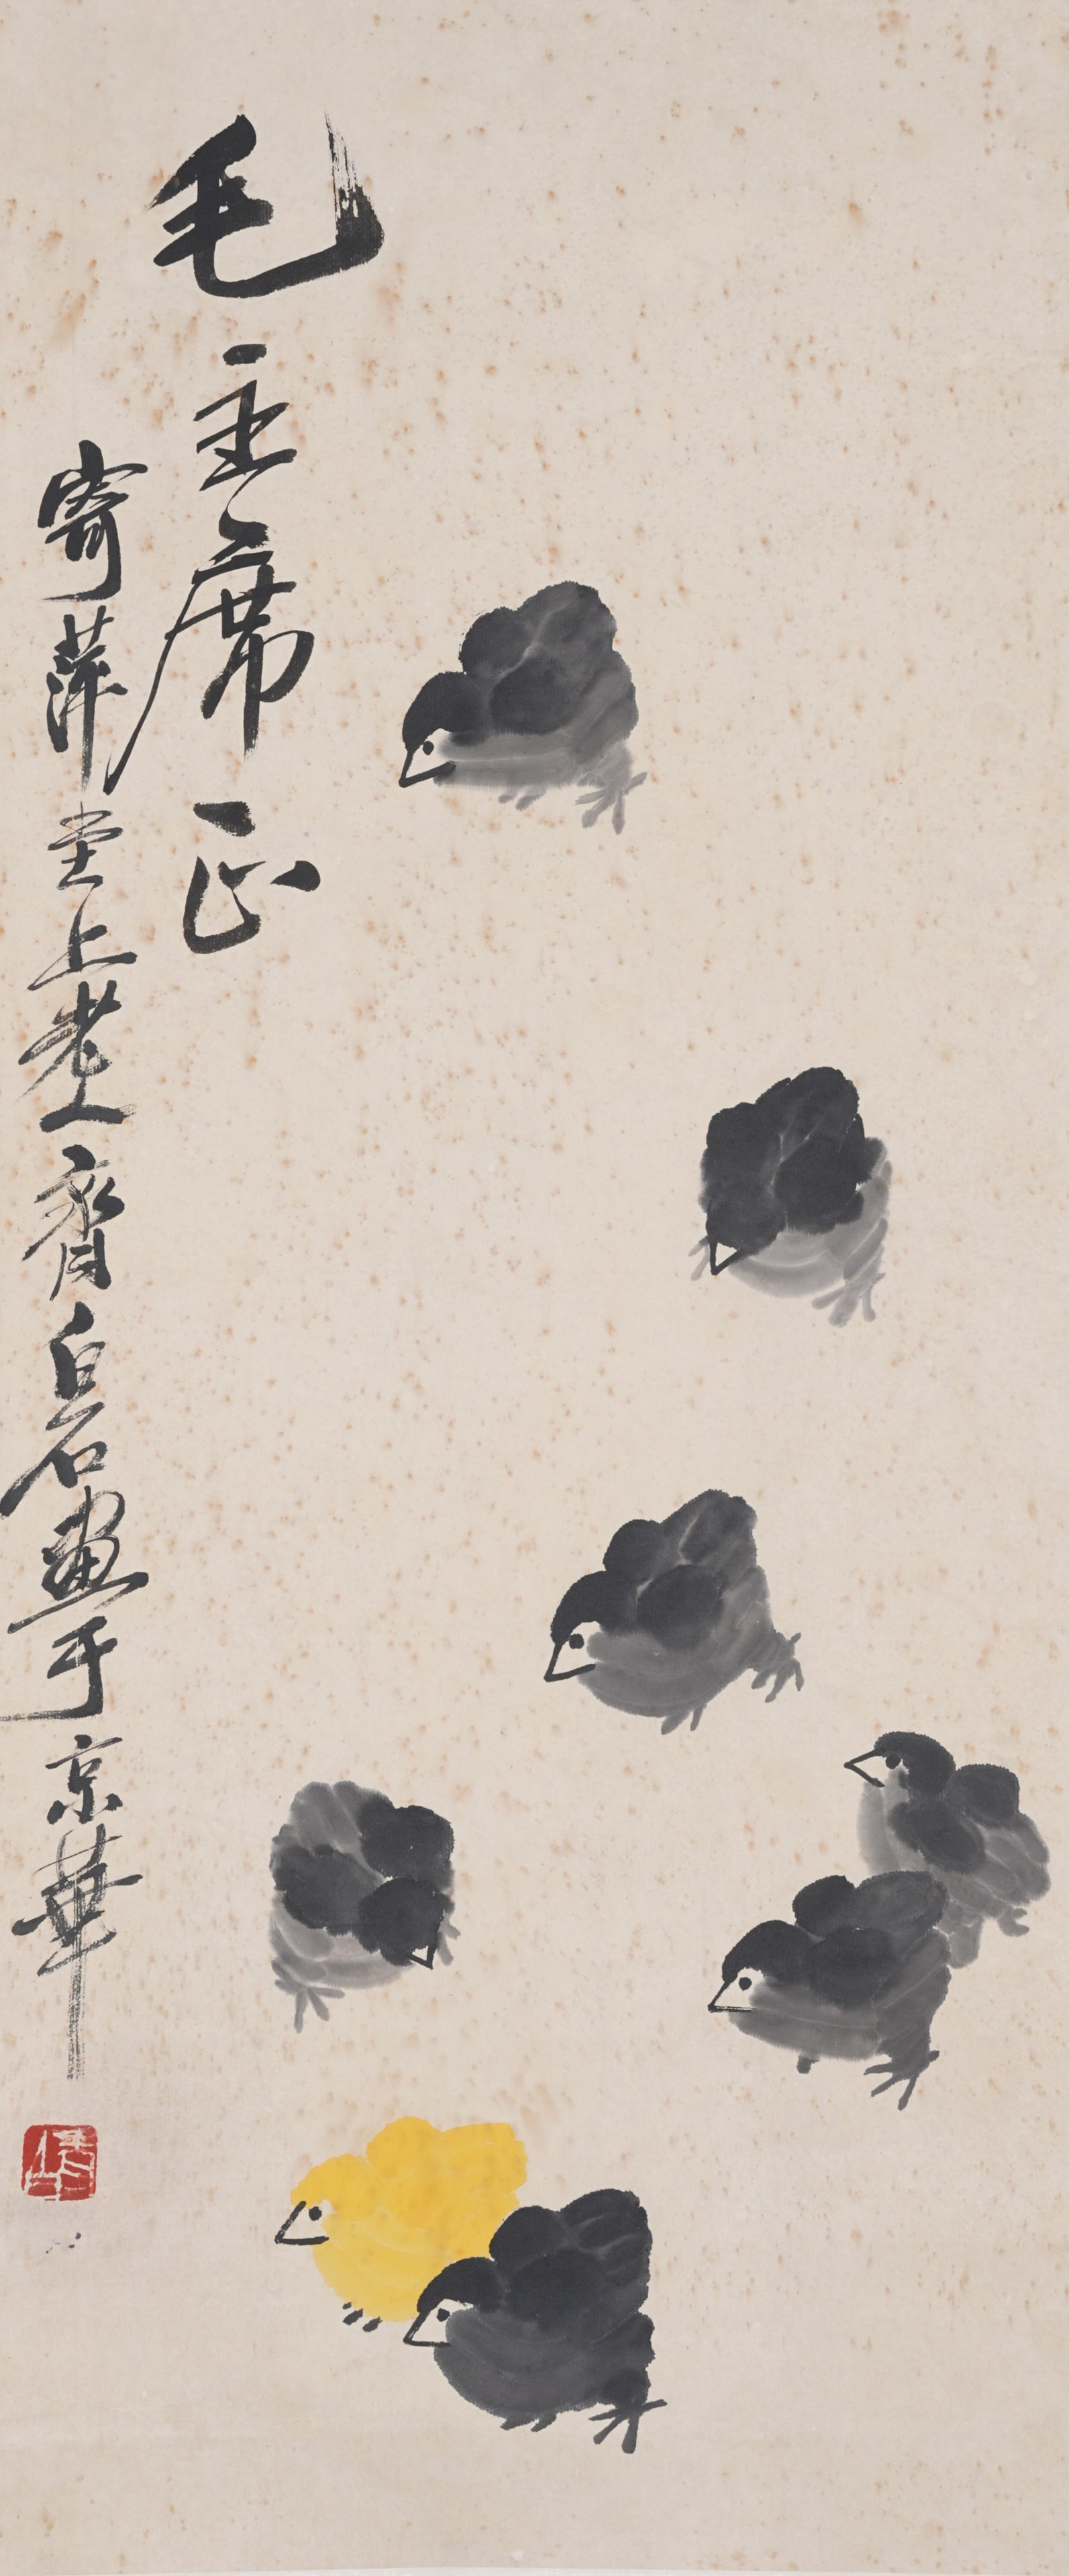 毛主席正
寄萍堂上老人齊白石畫于京華